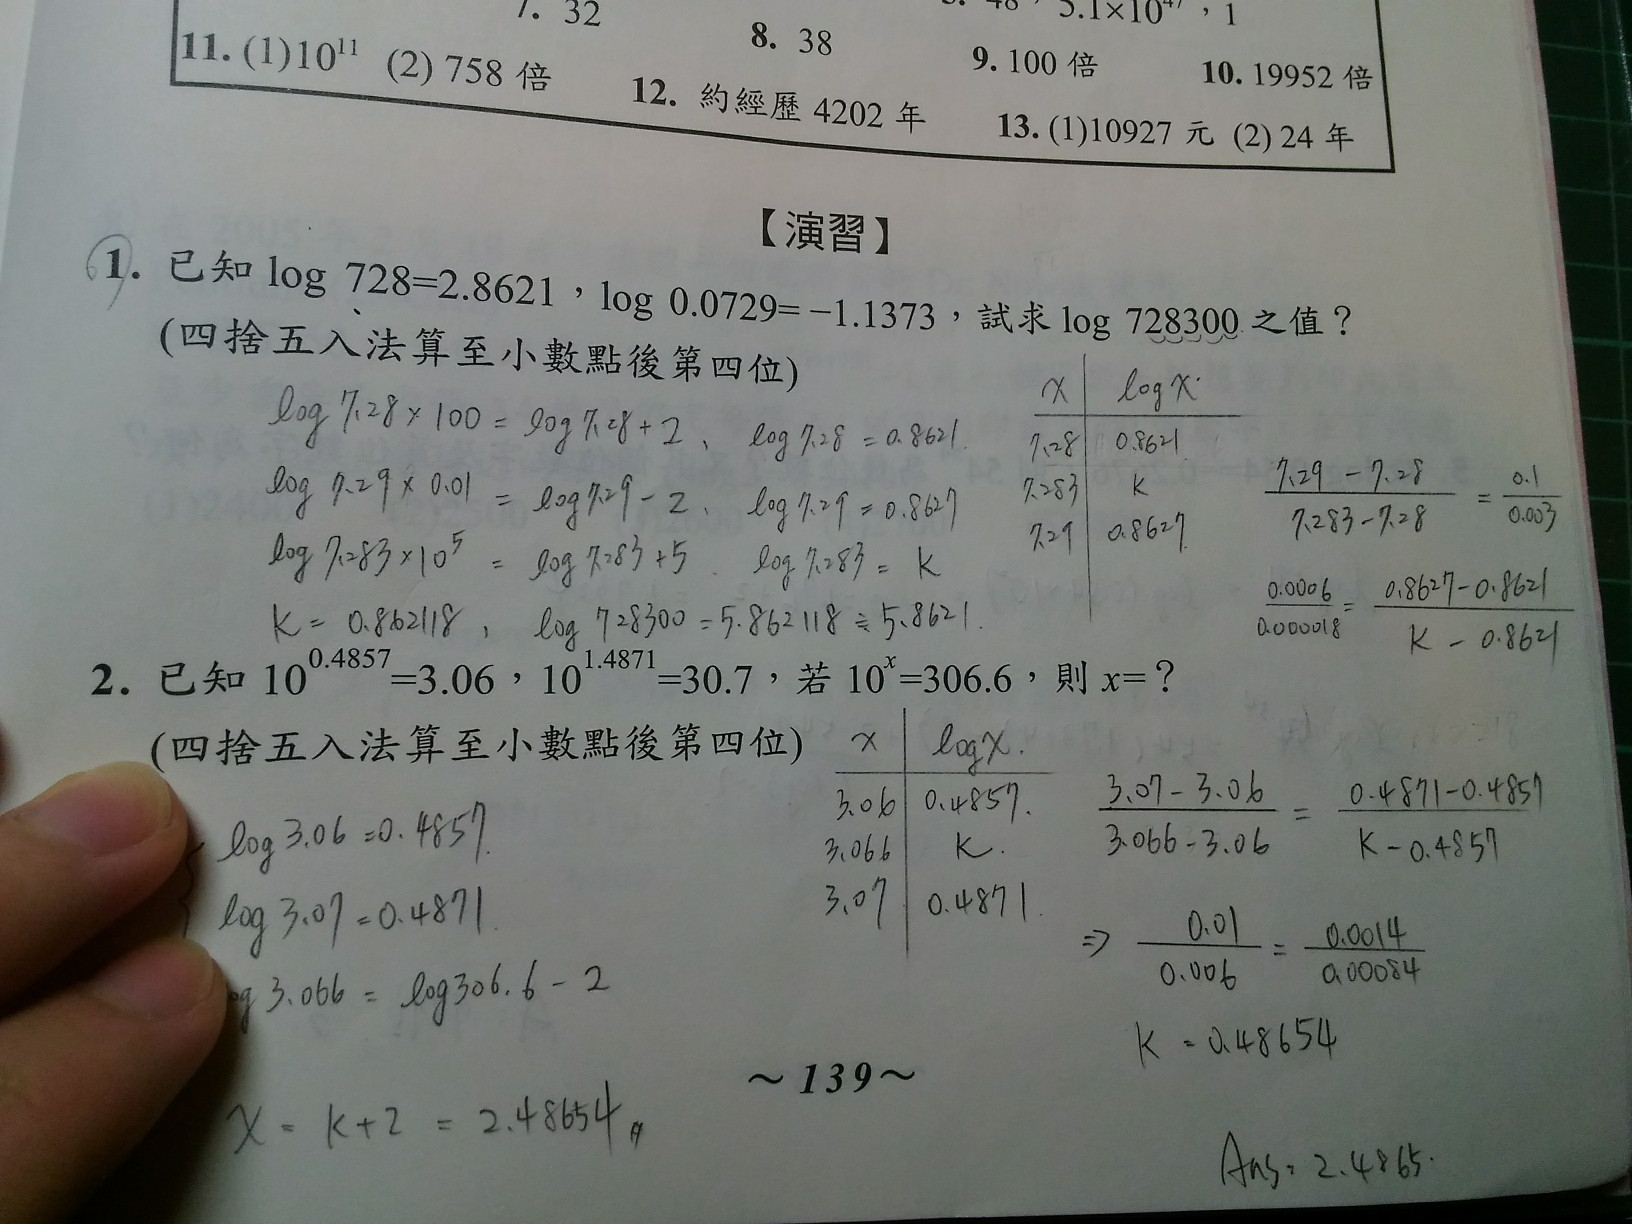 7. 32
8. 38
5.1×10⁴⁷，1
9. 100 倍
10. 19952 倍
11. (1)10¹¹ (2) 758 倍
12. 約經歷 4202 年
13. (1)10927 元 (2) 24 年
【演習】
1. 已知 log 728=2.8621，log 0.0729= −1.1373，試求 log 728300 之值？
(四捨五入法算至小數點後第四位)
log 7.28 × 100 = log 7.28 + 2、 log 7.28 = 0.8621.
log 7.29 × 0.01 = log 7.29 - 2、 log 7.29 = 0.8627
log 7.283 × 10⁵ = log 7.283 + 5. log 7.283 = K
K = 0.862118, log 728300 = 5.862118 ≒ 5.8621.
x | log x.
7.28 | 0.8621
7.283 | K
7.29 | 0.8627.
(7.29 - 7.28)/(7.283 - 7.28) = 0.1/0.003
0.0006/0.000018 = (0.8627 - 0.8621)/(K - 0.8621)
2. 已知 10^0.4857=3.06，10^1.4871=30.7，若 10^x=306.6，則 x=？
(四捨五入法算至小數點後第四位)
log 3.06 = 0.4857.
log 3.07 = 0.4871.
3.066 = log 306.6 - 2
x = K + 2 = 2.48654
x | log x.
3.06 | 0.4857.
3.066 | K.
3.07 | 0.4871.
(3.07 - 3.06)/(3.066 - 3.06) = (0.4871 - 0.4857)/(K - 0.4857)
⇒ 0.01/0.006 = 0.0014/0.00084
K = 0.48654
～139～
Ans: 2.4865.